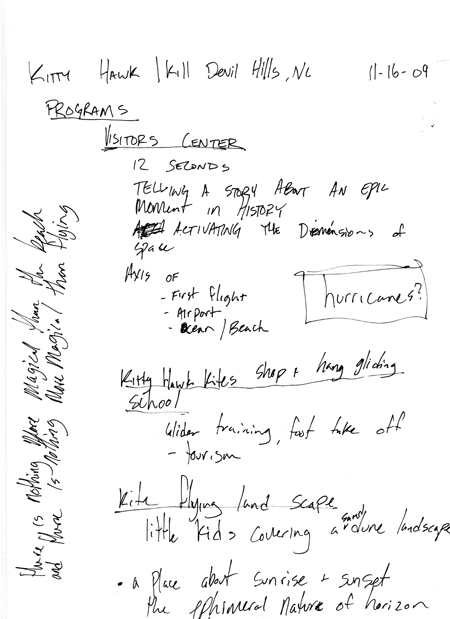 KITTY HAWK / Kill Devil Hills, NC 11-16-09
PROGRAMS
VISITORS CENTER
12 SECONDS
TELLING A STORY ABOUT AN EPIC
MOMENT IN HISTORY
ACTIVATING THE Dimensions of
space
AXIS OF
- First flight
- Airport
- Ocean / Beach
hurricanes?
Kitty Hawk Kites shop + hang gliding
school
Glider training, foot take off
- tourism
Kite flying land scape
little kids covering a sandy dune landscape
• a place about sunrise + sunset
the ephimeral nature of horizon
there is nothing more magical than the beach
and there is nothing more magical than flying